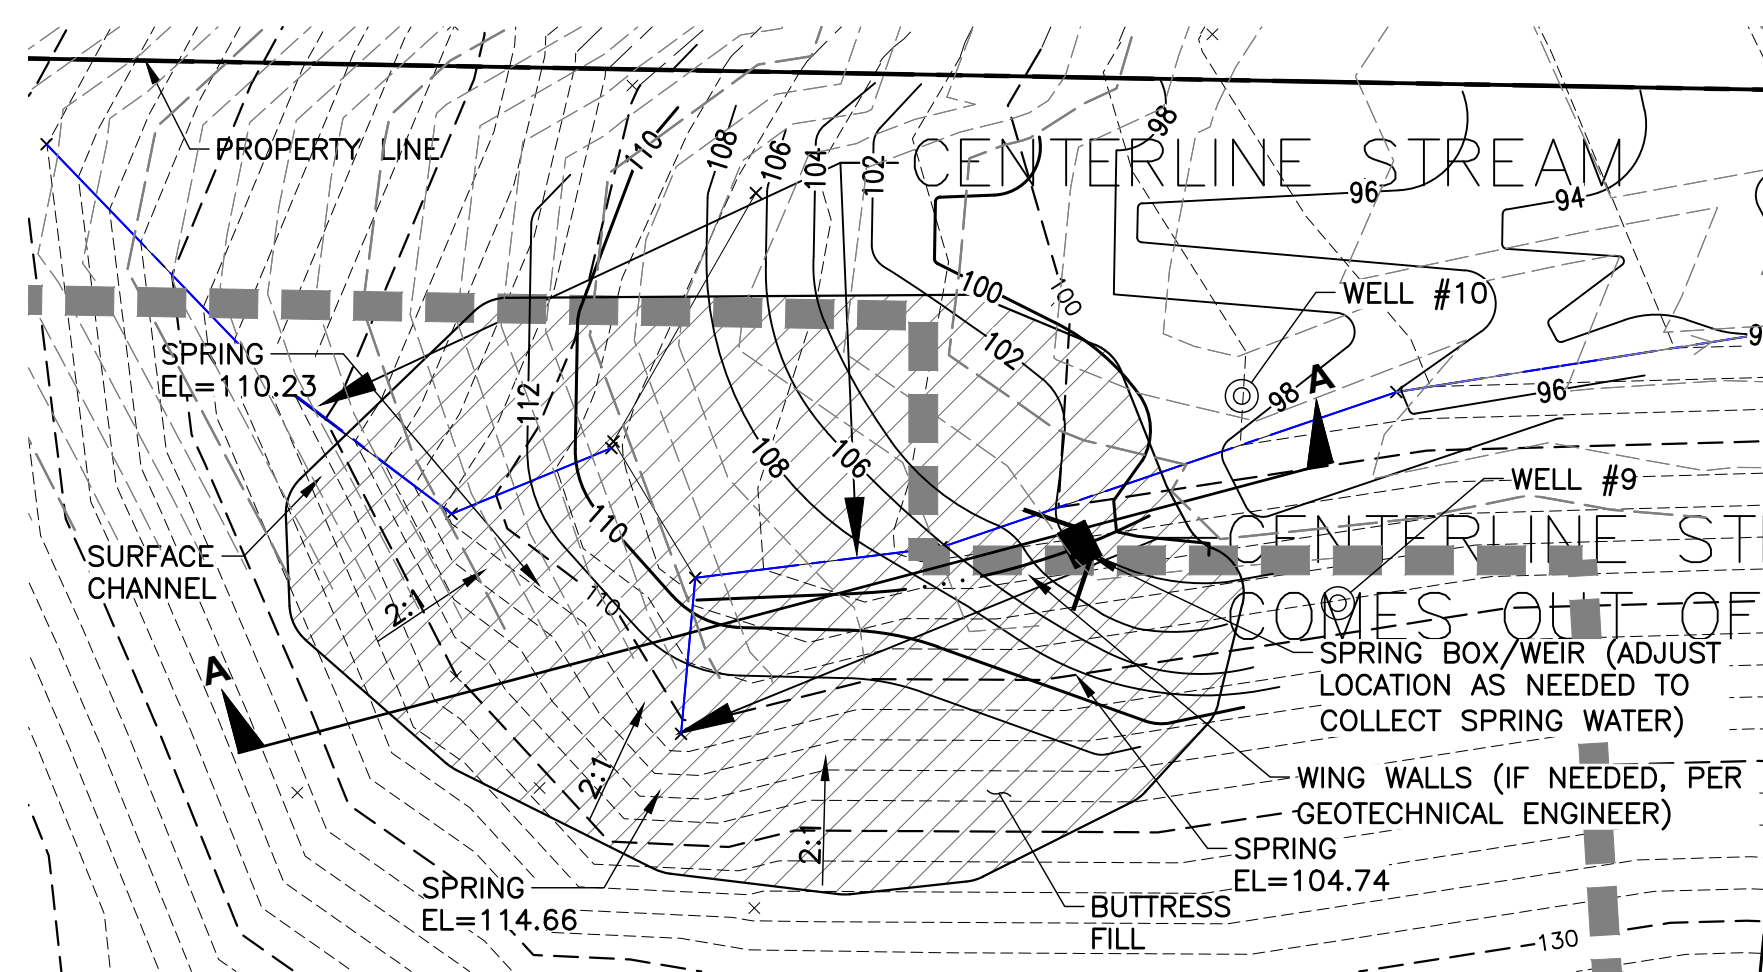 PROPERTY LINE
110
108
106
104
102
98
CENTERLINE STREAM
96
94
100
100
WELL #10
102
SPRING
EL=110.23
112
98
A
96
9
108
106
WELL #9
110
SURFACE
CHANNEL
CENTERLINE ST
2:1
110
COMES OUT OF
A
SPRING BOX/WEIR (ADJUST
LOCATION AS NEEDED TO
COLLECT SPRING WATER)
2:1
WING WALLS (IF NEEDED, PER
GEOTECHNICAL ENGINEER)
2:1
SPRING
EL=104.74
SPRING
EL=114.66
BUTTRESS
FILL
130